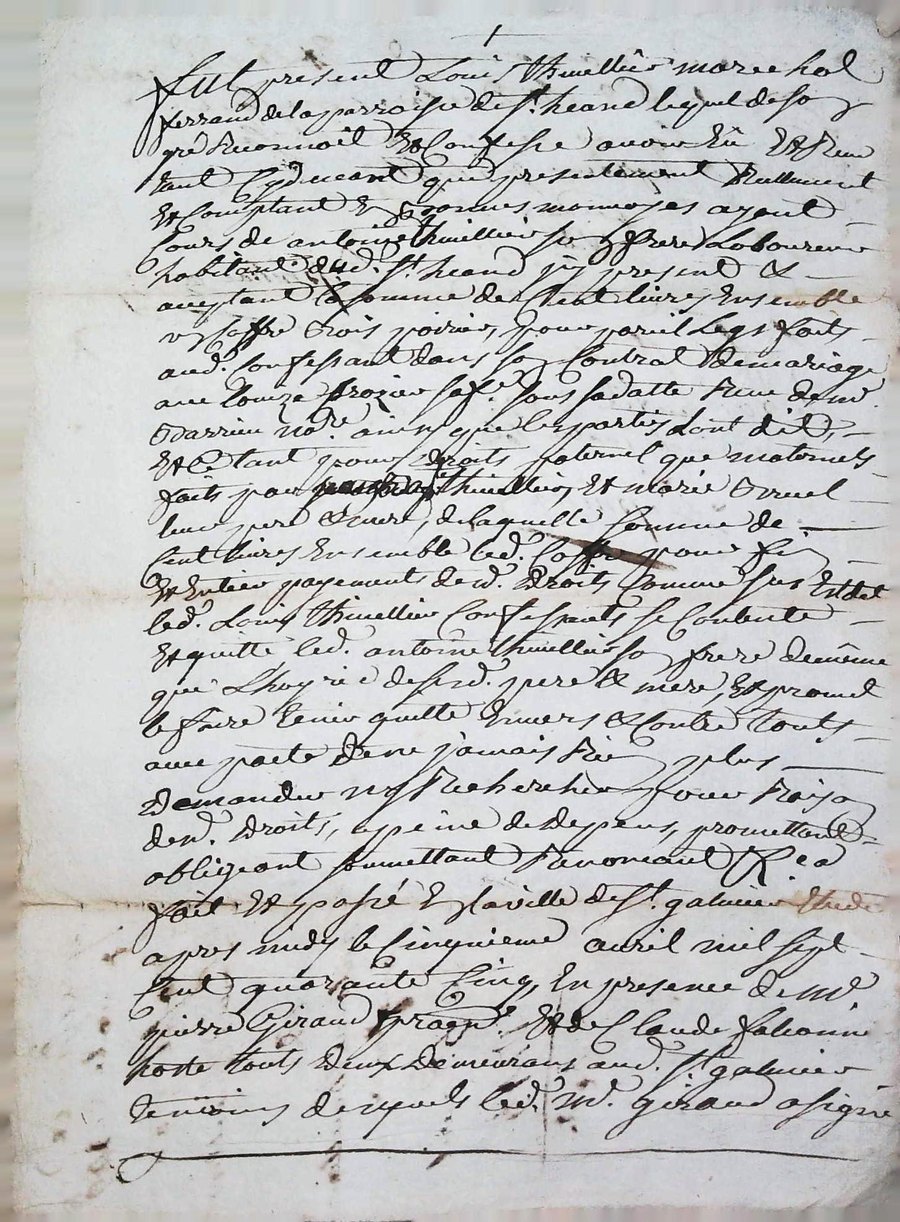 fut present Louis thivellier marechal
ferrand de la parroisse de st. heand lequel de son
gré reconnoit et confesse avoir eü et
tant cydevant que presentement reellement
et comptant en bonnes monnoyes ayent
cours de antoine thivellier son frere Laboureur
habitant dud. st. heand icy present et
aceptant la somme de cent livres ensemble
un coffre bois poirier, pour pareil Legt faits
aud. confessant dans son contrat de mariage
avec sa fe. sous sa datte reçu de me.
nore. ainsy que les parties L'ont dit,
et ce tant pour droits paternel que maternels
faits par thivellier, et marie
leur pere et mere, de laquelle somme de
cent livres ensemble led. coffre pour fin
et entier payements desd. Droits comme sus est dit
led. Louis thivellier confessant se contente
et quitte led. antoine thivellier son frere de même
que L'hoyrie de sesd. pere et mere, et promet
le faire tenir quitte envers et contre touts
avec pacte de ne jamais rien plus
Demander ny rechercher pour raison
desd. Droits, a peine de Depens, promettant
obligeant soumettant renonceant &c a
fait et passé en la ville de st. galmier etude
apres midy le cinquieme avril mil sept
cent quarante cinq, en presence de me
pierre Giraud pragn. et de Claude
hoste touts deux demeurans aud. st. galmier
temoins desquels led. me. giraud a signé